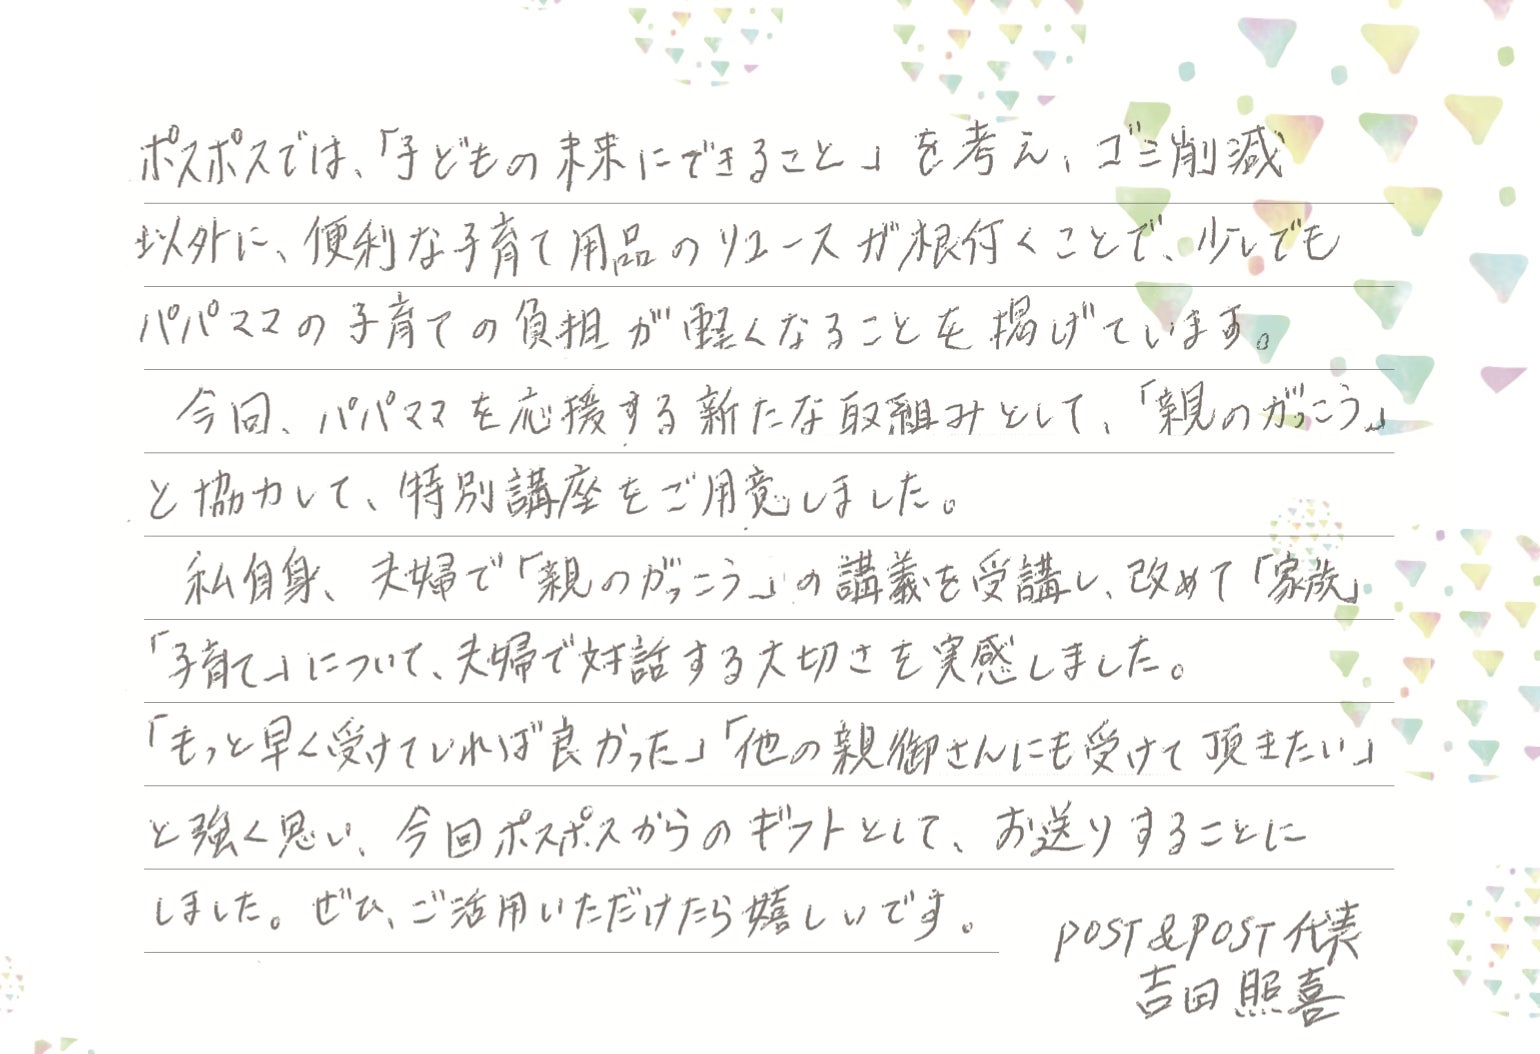 ポスポスでは、「子どもの未来にできること」を考え、ゴミ削減
以外に、便利な子育て用品のリユースが根付くことで、少しでも
パパママの子育ての負担が軽くなることを掲げています。
今回、パパママを応援する新たな取組みとして、「親のがっこう」
と協力して、特別講座をご用意しました。
私自身、夫婦で「親のがっこう」の講義を受講し、改めて「家族」
「子育て」について、夫婦で対話する大切さを実感しました。
「もっと早く受けていれば良かった」「他の親御さんにも受けて頂きたい」
と強く思い、今回ポスポスからのギフトとして、お送りすることに
しました。ぜひ、ご活用いただけたら嬉しいです。
POST&POST 代表
吉田 照喜